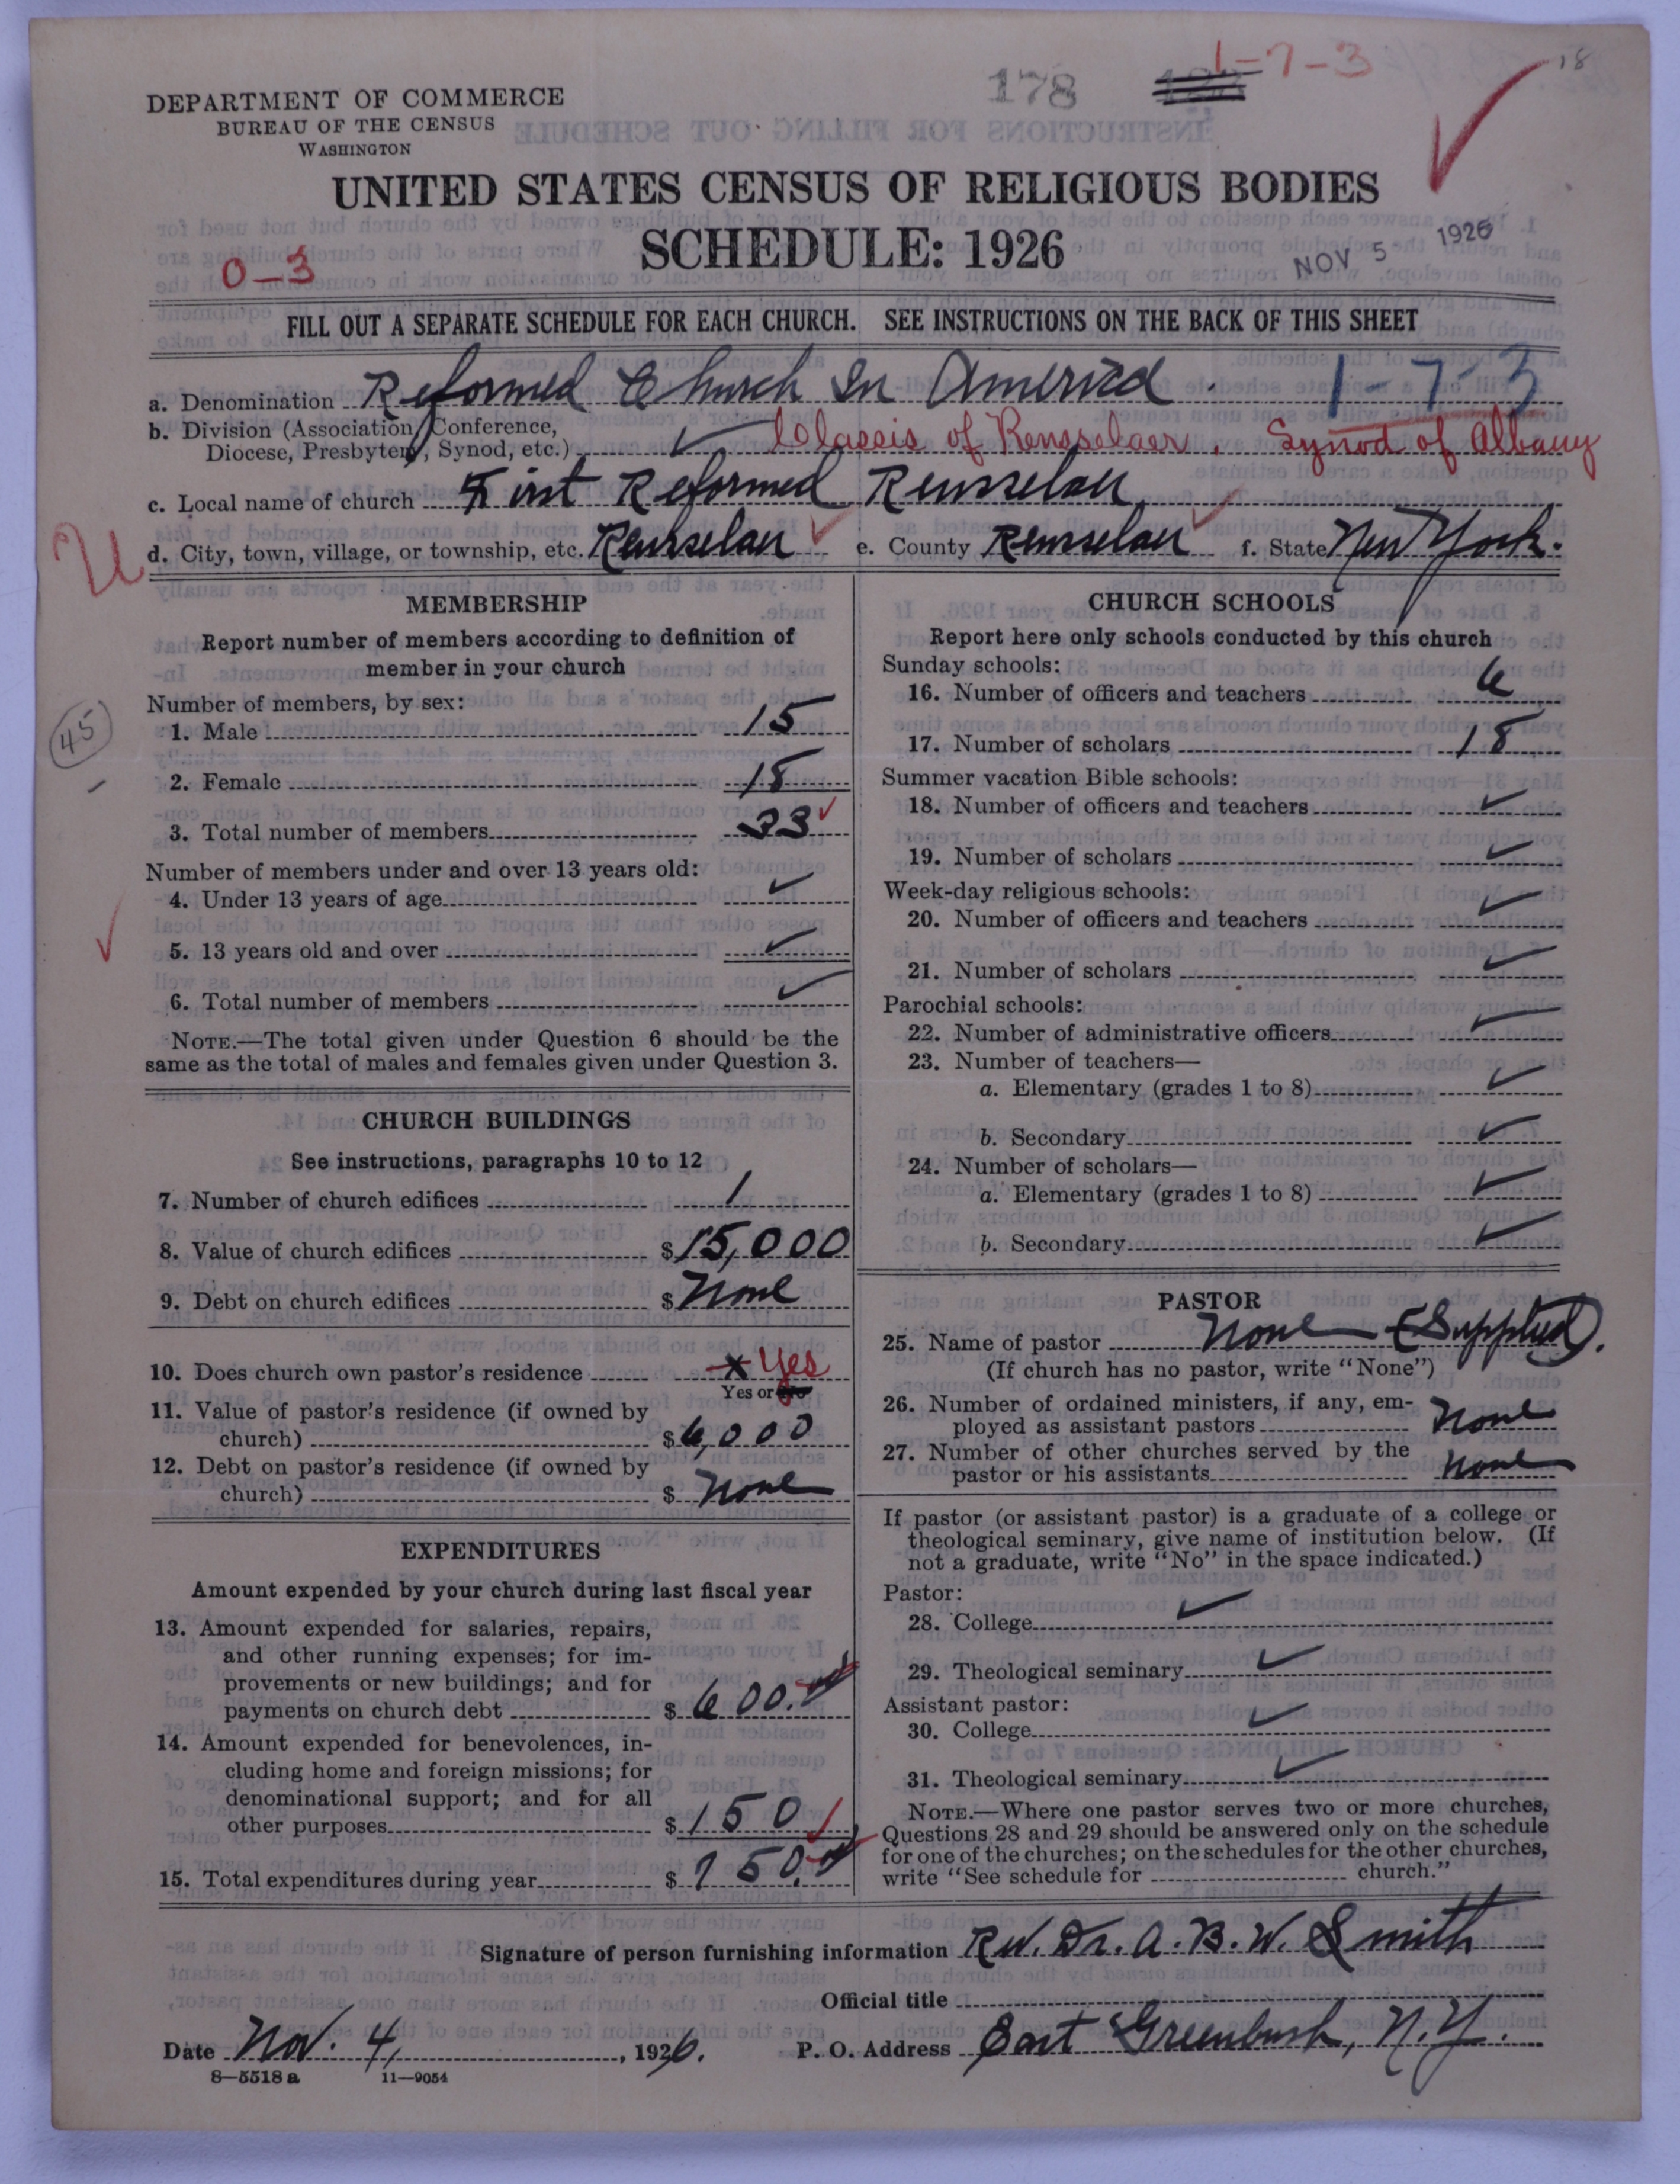 1-7-3
18
178
DEPARTMENT OF COMMERCE
BUREAU OF THE CENSUS
WASHINGTON
UNITED STATES CENSUS OF RELIGIOUS BODIES
SCHEDULE: 1926
NOV 5 1926
0-3
FILL OUT A SEPARATE SCHEDULE FOR EACH CHURCH. SEE INSTRUCTIONS ON THE BACK OF THIS SHEET
a. Denomination Reformed Church In America. 1-7-3
b. Division (Association, Conference,
Diocese, Presbytery, Synod, etc.) ✓ Classis of Rensselaer, Synod of Albany
c. Local name of church First Reformed Rensselaer
U
d. City, town, village, or township, etc. Rensselaer e. County Rensselaer f. State New York.
MEMBERSHIP
Report number of members according to definition of
member in your church
Number of members, by sex:
1. Male 15
45
2. Female 18
3. Total number of members 33 ✓
Number of members under and over 13 years old:
4. Under 13 years of age ✓
5. 13 years old and over ✓
6. Total number of members ✓
NOTE.—The total given under Question 6 should be the
same as the total of males and females given under Question 3.
CHURCH BUILDINGS
See instructions, paragraphs 10 to 12
7. Number of church edifices 1
8. Value of church edifices $15,000
9. Debt on church edifices $None
10. Does church own pastor's residence x Yes
Yes or No
11. Value of pastor's residence (if owned by
church) $6,000
12. Debt on pastor's residence (if owned by
church) $ None
EXPENDITURES
Amount expended by your church during last fiscal year
13. Amount expended for salaries, repairs,
and other running expenses; for im-
provements or new buildings; and for
payments on church debt $ 600.
14. Amount expended for benevolences, in-
cluding home and foreign missions; for
denominational support; and for all
other purposes $150
15. Total expenditures during year $750.
CHURCH SCHOOLS
Report here only schools conducted by this church
Sunday schools:
16. Number of officers and teachers 6
17. Number of scholars 18
Summer vacation Bible schools:
18. Number of officers and teachers ✓
19. Number of scholars ✓
Week-day religious schools:
20. Number of officers and teachers ✓
21. Number of scholars ✓
Parochial schools:
22. Number of administrative officers ✓
23. Number of teachers—
a. Elementary (grades 1 to 8) ✓
b. Secondary ✓
24. Number of scholars—
a. Elementary (grades 1 to 8) ✓
b. Secondary ✓
PASTOR
25. Name of pastor None (Supplied).
(If church has no pastor, write "None")
26. Number of ordained ministers, if any, em-
ployed as assistant pastors None
27. Number of other churches served by the
pastor or his assistants None
If pastor (or assistant pastor) is a graduate of a college or
theological seminary, give name of institution below. (If
not a graduate, write "No" in the space indicated.)
Pastor:
28. College ✓
29. Theological seminary ✓
Assistant pastor:
30. College ✓
31. Theological seminary ✓
NOTE.—Where one pastor serves two or more churches,
Questions 28 and 29 should be answered only on the schedule
for one of the churches; on the schedules for the other churches,
write "See schedule for church."
Signature of person furnishing information Rev. Dr. A. B. W. Smith
Official title
Date Nov. 4, 1926. P. O. Address East Greenbush, N.Y.
8—5518 a 11—9054